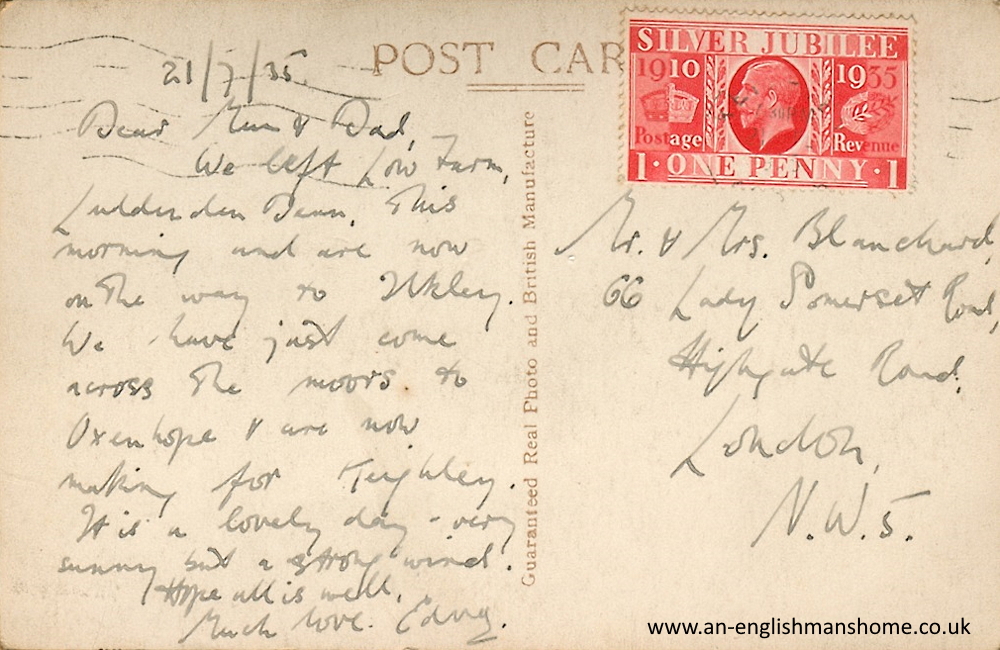 21/7/35
Dear Mum & Dad,
We left Low Farm,
Luddenden Dean, This
morning and are now
on The way to Ilkley.
We have just come
across The moors to
Oxenhope & are now
making for Keighley.
It is a lovely day - very
sunny but a strong wind.
Hope all is well,
Much love. Edna.
POST CAR
Guaranteed Real Photo and British Manufacture
SILVER JUBILEE
1910 1935
Postage Revenue
1 · ONE PENNY · 1
Mr. & Mrs. Blanchard,
66 Lady Somerset Road,
Highgate Road,
London,
N.W.5.
www.an-englishmanshome.co.uk